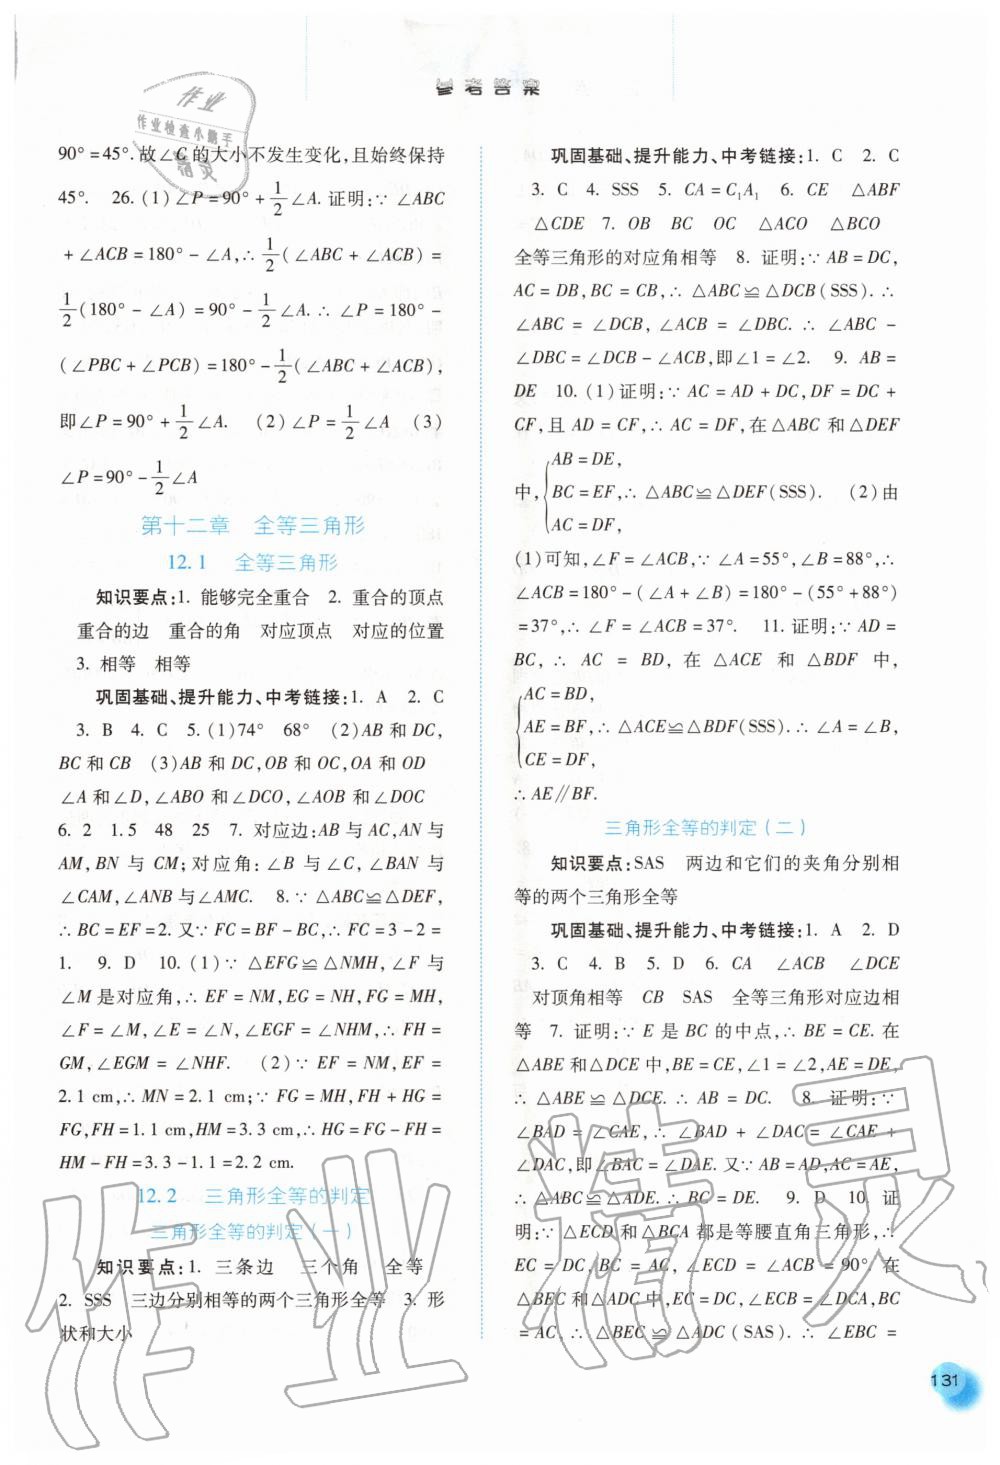 参考答案
作业
作业检查小助手
精灵
90°=45°. 故∠C 的大小不发生变化,且始终保持
45°. 26. (1)∠P=90°+1/2∠A. 证明:∵ ∠ABC
+∠ACB=180°-∠A,∴ 1/2(∠ABC+∠ACB)=
1/2(180°-∠A)=90°-1/2∠A. ∴ ∠P=180°-
(∠PBC+∠PCB)=180°-1/2(∠ABC+∠ACB),
即∠P=90°+1/2∠A. (2)∠P=1/2∠A (3)
∠P=90°-1/2∠A
第十二章 全等三角形
12.1 全等三角形
知识要点:1. 能够完全重合 2. 重合的顶点
重合的边 重合的角 对应顶点 对应的位置
3. 相等 相等
巩固基础、提升能力、中考链接:1. A 2. C
3. B 4. C 5. (1)74° 68° (2)AB 和 DC,
BC 和 CB (3)AB 和 DC,OB 和 OC,OA 和 OD
∠A 和∠D,∠ABO 和∠DCO,∠AOB 和∠DOC
6. 2 1.5 48 25 7. 对应边:AB 与 AC,AN 与
AM,BN 与 CM;对应角:∠B 与∠C,∠BAN 与
∠CAM,∠ANB 与∠AMC. 8. ∵ △ABC≌△DEF,
∴ BC=EF=2. 又∵ FC=BF-BC,∴ FC=3-2=
1. 9. D 10. (1)∵ △EFG≌△NMH,∠F 与
∠M 是对应角,∴ EF=NM,EG=NH,FG=MH,
∠F=∠M,∠E=∠N,∠EGF=∠NHM,∴ FH=
GM,∠EGM=∠NHF. (2)∵ EF=NM,EF=
2.1 cm,∴ MN=2.1 cm;∵ FG=MH,FH+HG=
FG,FH=1.1 cm,HM=3.3 cm,∴ HG=FG-FH=
HM-FH=3.3-1.1=2.2 cm.
12.2 三角形全等的判定
三角形全等的判定(一)
知识要点:1. 三条边 三个角 全等
2. SSS 三边分别相等的两个三角形全等 3. 形
状和大小
巩固基础、提升能力、中考链接:1. C 2. C
3. C 4. SSS 5. CA=C₁A₁ 6. CE △ABF
△CDE 7. OB BC OC △ACO △BCO
全等三角形的对应角相等 8. 证明:∵ AB=DC,
AC=DB,BC=CB,∴ △ABC≌△DCB(SSS). ∴
∠ABC=∠DCB,∠ACB=∠DBC. ∴ ∠ABC-
∠DBC=∠DCB-∠ACB,即∠1=∠2. 9. AB=
DE 10. (1)证明:∵ AC=AD+DC,DF=DC+
CF,且 AD=CF,∴ AC=DF,在△ABC 和△DEF
AB=DE,
中,{BC=EF,∴ △ABC≌△DEF(SSS). (2)由
AC=DF,
(1)可知,∠F=∠ACB,∵ ∠A=55°,∠B=88°,∴
∠ACB=180°-(∠A+∠B)=180°-(55°+88°)
=37°,∴ ∠F=∠ACB=37°. 11. 证明:∵ AD=
BC,∴ AC=BD,在△ACE 和△BDF 中,
{AC=BD,
AE=BF,∴ △ACE≌△BDF(SSS). ∴ ∠A=∠B,
CE=DF,
∴ AE∥BF.
三角形全等的判定(二)
知识要点:SAS 两边和它们的夹角分别相
等的两个三角形全等
巩固基础、提升能力、中考链接:1. A 2. D
3. C 4. B 5. D 6. CA ∠ACB ∠DCE
对顶角相等 CB SAS 全等三角形对应边相
等 7. 证明:∵ E 是 BC 的中点,∴ BE=CE. 在
△ABE 和△DCE 中,BE=CE,∠1=∠2,AE=DE,
∴ △ABE≌△DCE. ∴ AB=DC. 8. 证明:∵
∠BAD=∠CAE,∴ ∠BAD+∠DAC=∠CAE+
∠DAC,即∠BAC=∠DAE. 又∵ AB=AD,AC=AE,
∴ △ABC≌△ADE. ∴ BC=DE. 9. D 10. 证
明:∵ △ECD 和△BCA 都是等腰直角三角形,∴
EC=DC,BC=AC,∠ECD=∠ACB=90°. 在
△BEC 和△ADC 中,EC=DC,∠ECB=∠DCA,BC
=AC,∴ △BEC≌△ADC(SAS). ∴ ∠EBC=
作业精灵
131